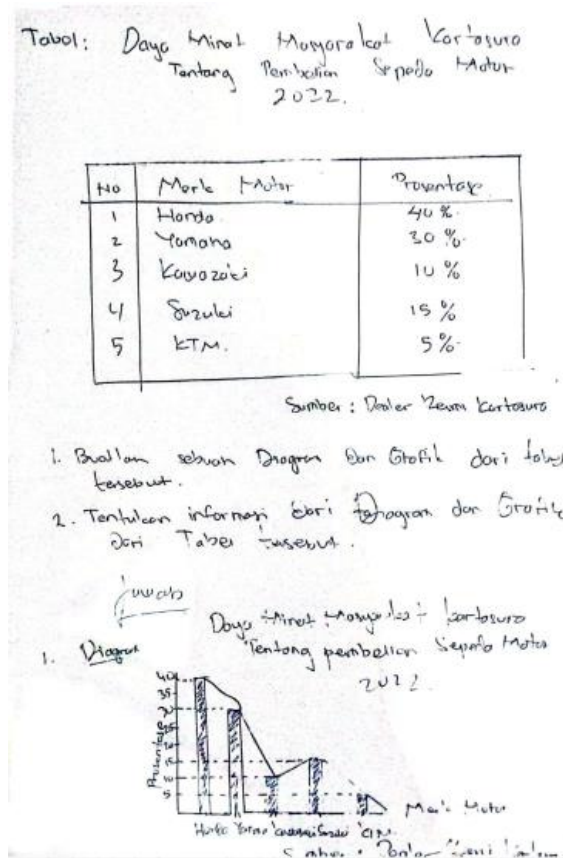 Tabel: Daya Minat Masyarakat Kartosuro
Tentang Pembelian Sepeda Motor
2022.
No Merk Motor Prosentase
1 Honda. 40 %.
2 Yamaha 30 %.
3 Kawazaki 10 %
4 Suzuki 15 %
5 KTM. 5 %.
Sumber : Dealer Kartosuro
1. Buatlan sebuah Diagram Dan Grafik dari tabel
tersebut.
2. Tentukan informasi dari Diagram dan Grafik
Dari Tabel tersebut.
Jawab
Daya Minat Masyarakat kartosuro
1. Diagram Tentang pembelian Sepeda Motor
2022.
Prosentase
40
35
30
25
15
10
5
Honda Yamaha Kawazaki Suzuki KTM.
Merk Motor